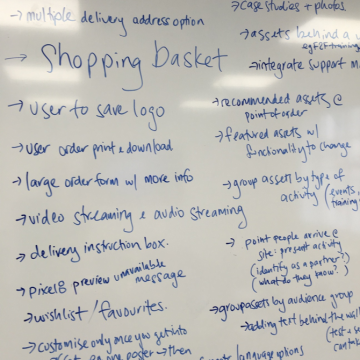 → multiple delivery address option
→ Shopping Basket
→ user to save logo
→ user order print & download
→ large order form w/ more info
→ video streaming & audio streaming
→ delivery instruction box.
→ pixel8 preview unavailable
message
→ wishlist / favourites.
→ customise only once you get into
one poster → then
→ case studies + photos
→ assets behind a
→ integrate support
→ recommended assets @
point of order
→ featured assets w/
functionality to change
→ group assets by type of
activity (events,
training
→ point people arrive @
site: present activity
(identify as a partner?)
(what do they know?)
→ group assets by audience group
→ adding text behind the wall
(test a
language options